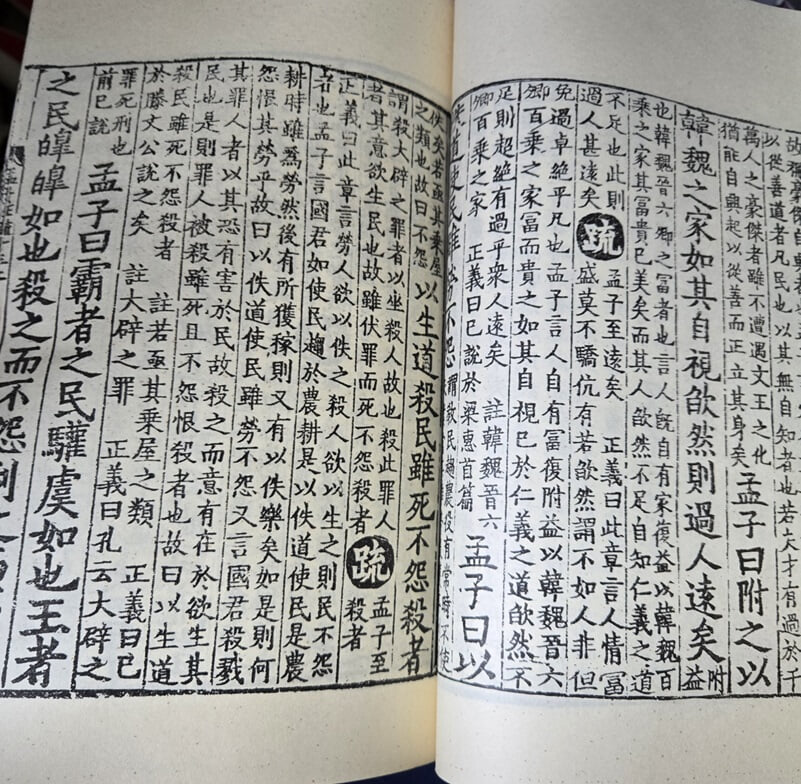 以從善道者凡民也以其無自知者也若夫才有過於千
萬人之豪傑者雖不遭遇文王之化
猶能自興起以從善而正立其身矣
孟子曰附之以
韓魏之家如其自視欿然則過人遠矣
附
益
也韓魏晉六卿之富者也言人既自有家復益以韓魏百
乘之家其富貴已美矣而其人欿然不足自知仁義之道
不足也此則
過人甚遠矣
疏
孟子至遠矣 正義曰此章言人情富
盛莫不驕伉有若欿然謂不如人非但
免過卓絶乎凡也孟子言人自有富復附益以韓魏晉六
卿百乘之家富而貴之如其自視已於仁義之道欿然不
足則超絶有過乎衆人遠矣 註韓魏晉六
卿百乘之家 正義曰已說於梁惠首篇
孟子曰以
佚道使民雖勞不怨
謂教民趨農役有常時不使
佚矣若亟其乘屋
之類也故曰不怨
以生道殺民雖死不怨殺者
謂殺大辟之罪者以坐殺人故也殺此罪人
者其意欲生民也故雖伏罪而死不怨殺者
疏
孟子至
殺者
正義曰此章言勞人欲以佚之殺人欲以生之則民不怨
者也孟子言國君如使民趨於農耕是以佚道使民是農
耕時雖爲勞然後有所獲稼則又有以佚樂矣如是則何
怨恨其勞乎故曰以佚道使民雖勞不怨又言國君殺戮
其罪人者以其恐有害於民故殺之而意有在於欲生其
民也是則罪人被殺雖死且不怨恨殺者也故曰以生道
殺民雖死不怨殺者 註若亟其乘屋之類 正義曰已
於滕文公說之矣 註大辟之罪 正義曰孔云大辟之
罪死刑也
前已說
孟子曰霸者之民驩虞如也王者
之民皥皥如也殺之而不怨利